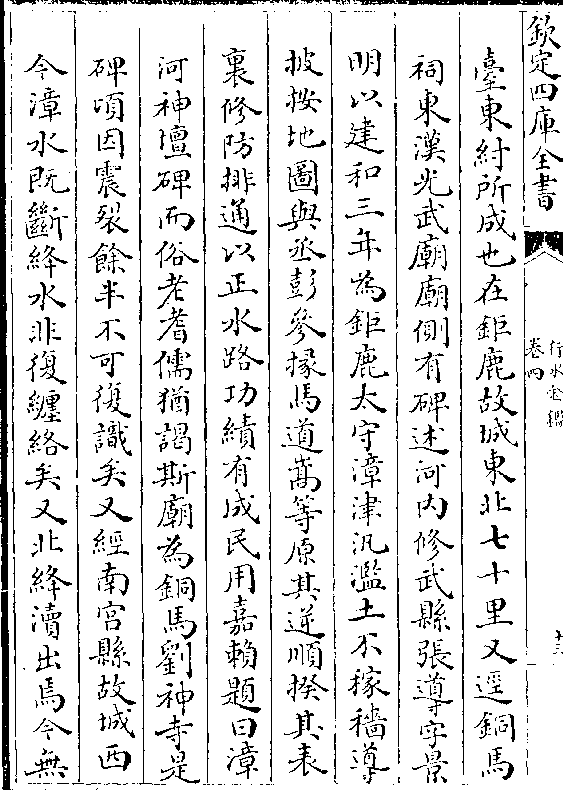 欽定四庫全書
行水金鑑
卷四
十三
臺東紂所成也在鉅鹿故城東北七十里又逕銅馬
祠東漢光武廟廟側有碑述河内修武縣張導字景
明以建和三年為鉅鹿太守漳津汎濫土不稼穡導
披按地圖與丞彭參掾馬道嵩等原其逆順揆其表
裏修防排通以正水路功績有成民用嘉賴題曰漳
河神壇碑而俗老耆儒猶謁斯廟為銅馬劉神寺是
碑項因震裂餘半不可復識矣又經南宫縣故城西
今漳水既斷絳水非復纒絡矣又北絳瀆出焉今無